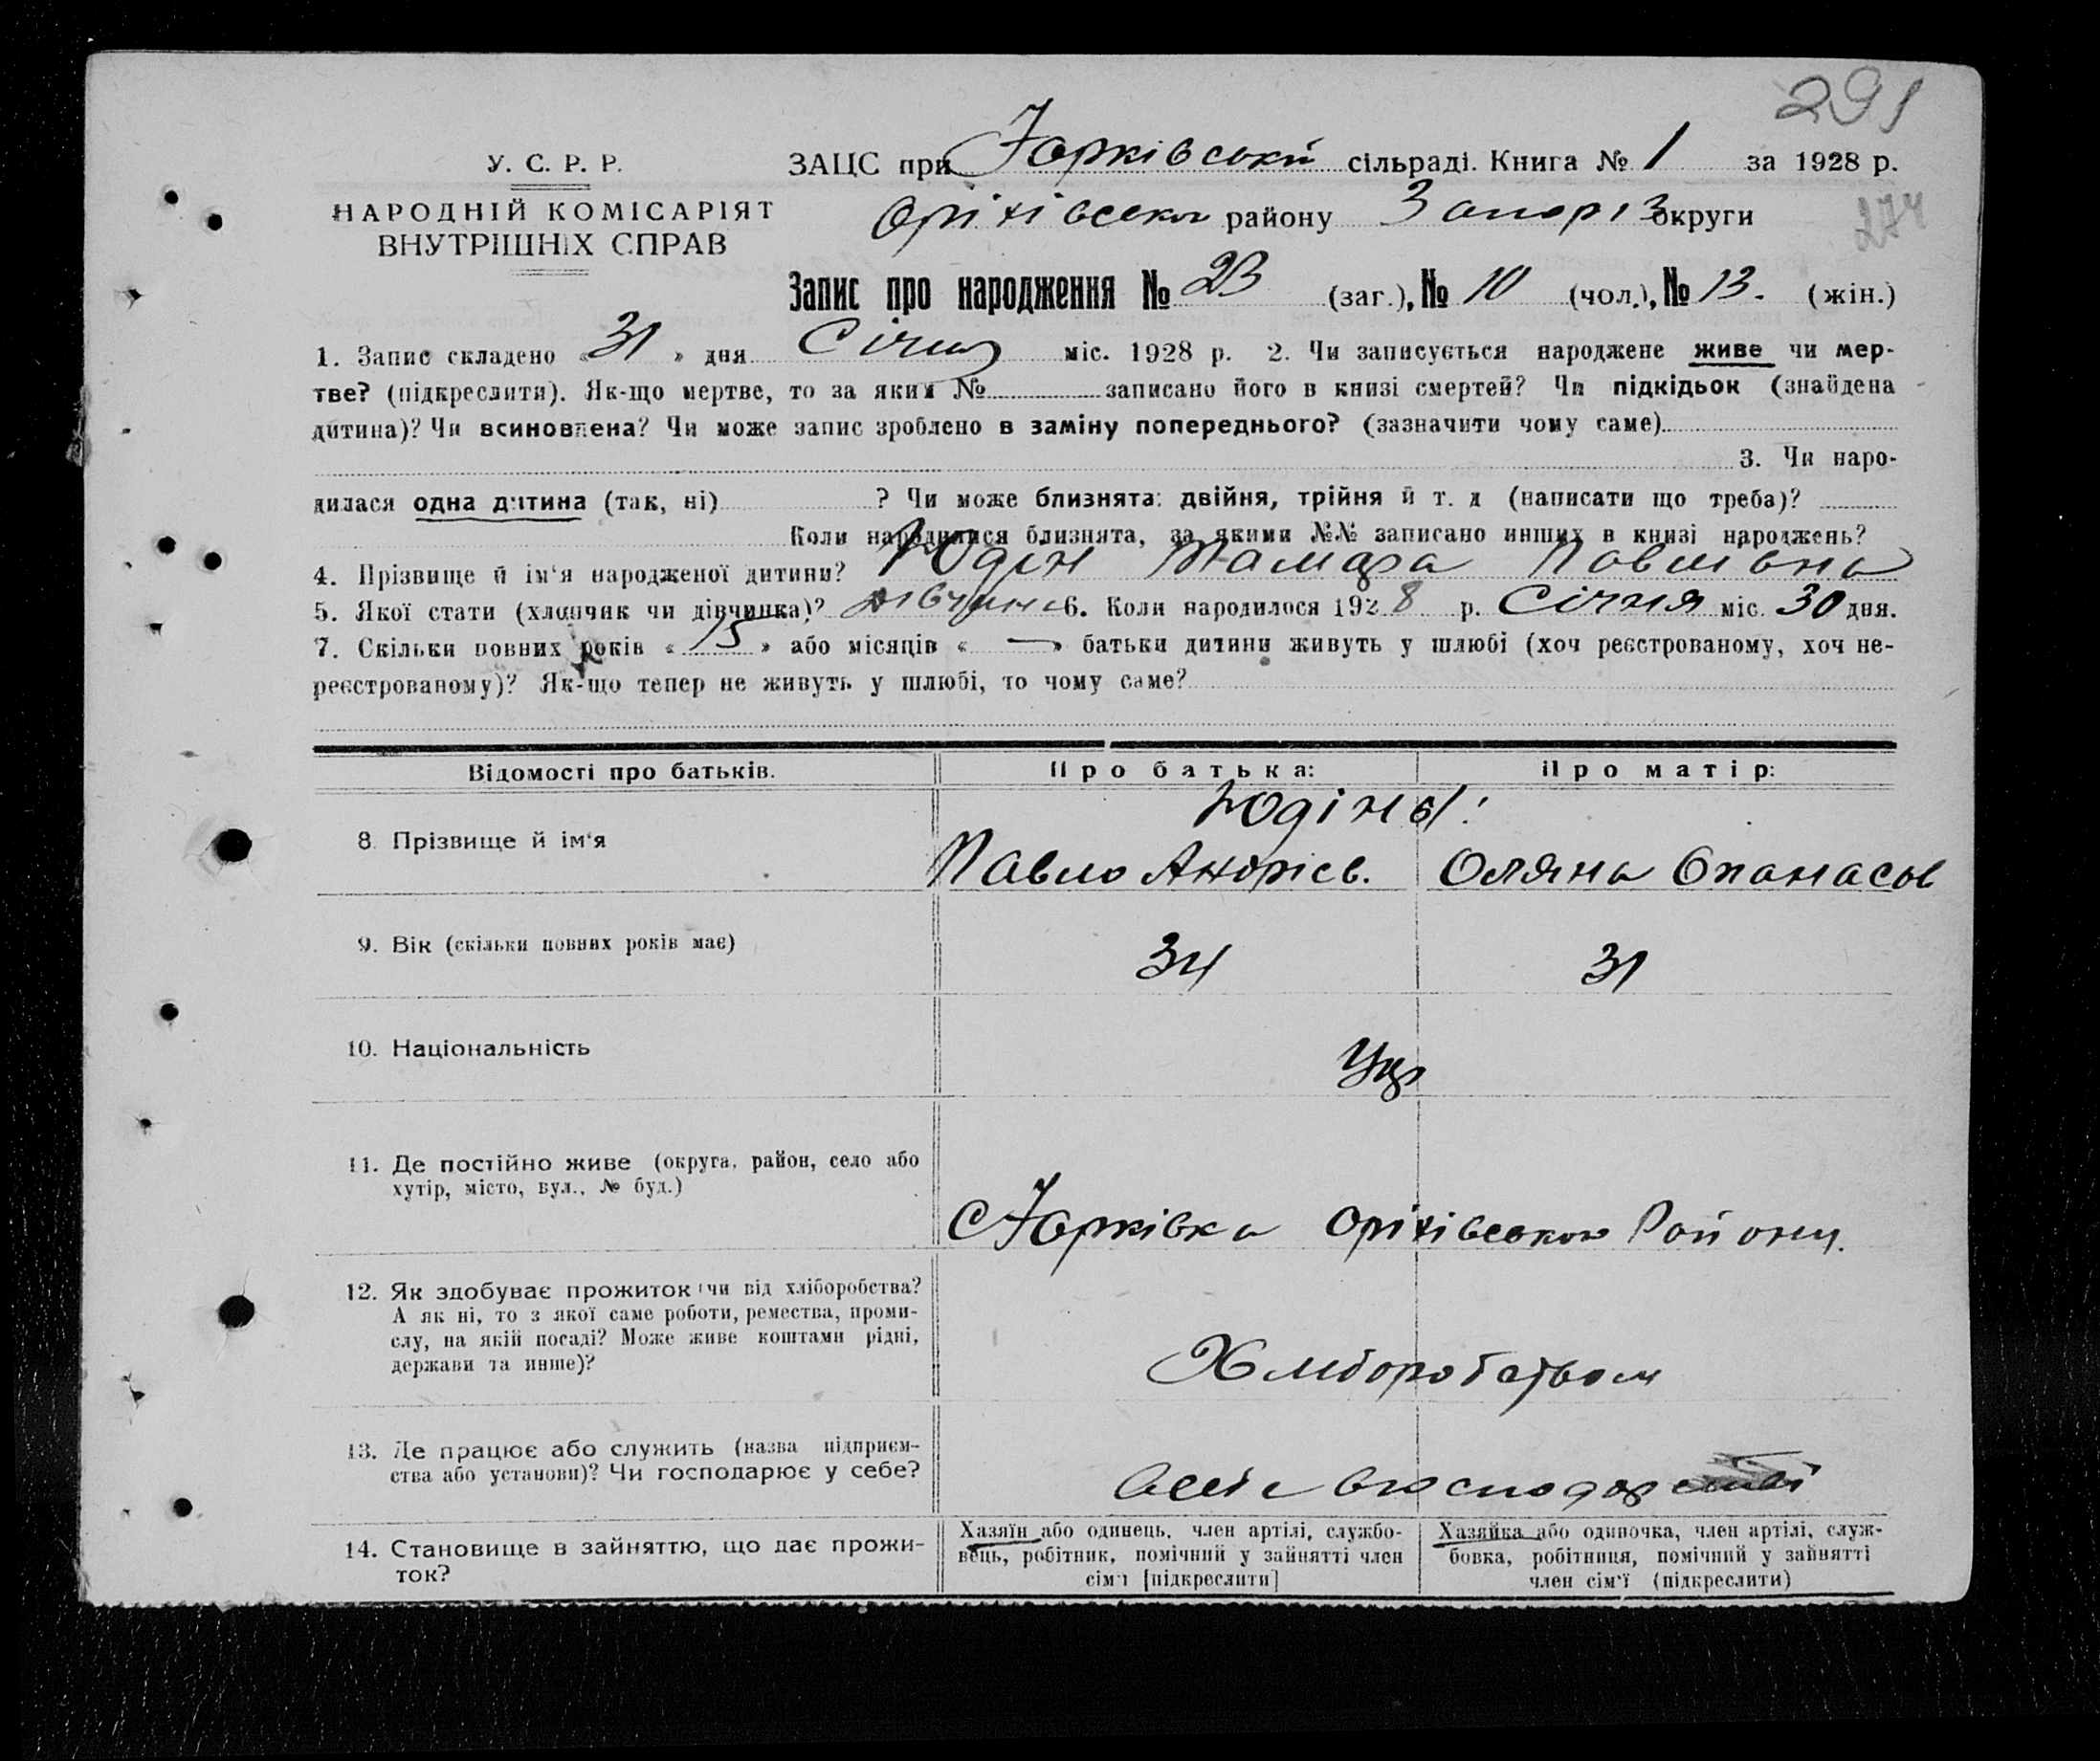 291
У. С. Р. Р.
НАРОДНІЙ КОМІСАРІЯТ
ВНУТРІШНІХ СПРАВ
ЗАЦС при Юрківській сільраді. Книга № 1 за 1928 р.
Оріхівськ району Запоріз округи
274
Запис про народження № 23 (заг.), № 10 (чол.), № 13. (жін.)
1. Запис складено «31» дня Січня міс. 1928 р. 2. Чи записується народжене живе чи мер-
тве? (підкреслити). Як-що мертве, то за яким № записано його в книзі смертей? Чи підкідьок (знайдена
дитина)? Чи всиновлена? Чи може запис зроблено в заміну попереднього? (зазначити чому саме)
3. Чи наро-
дилася одна дитина (так, ні) ? Чи може близнята: двійня, трійня й т. д (написати що треба)?
Коли народилися близнята, за якими №№ записано инших в книзі народжень?
4. Прізвище й ім'я народженої дитини? Юдін Тамара Павлівна
5. Якої стати (хлопчик чи дівчинка)? дівчина 6. Коли народилося 1928 р. Січня міс. 30 дня.
7. Скільки повних років «15» або місяців «—» батьки дитини живуть у шлюбі (хоч реєстрованому, хоч не-
реєстрованому)? Як-що тепер не живуть у шлюбі, то чому саме?
Відомості про батьків. Про батька: Про матір:
Юдіны:
8. Прізвище й ім'я Павло Андрієв. Оляна Опанасов
9. Вік (скільки повних років має) 34 31
10. Національність Укр
11. Де постійно живе (округа, район, село або
хутір, місто, вул., № буд.)
С Юрківка Оріхівського Району.
12. Як здобуває прожиток чи від хліборобства?
А як ні, то з якої саме роботи, ремества, проми-
слу, на якій посаді? Може живе коштами рідні,
держави та инше)?
Хліборобством
13. Де працює або служить (назва підприєм-
ства або установи)? Чи господарює у себе?
14. Становище в зайняттю, що дає прожи-
ток?
Хазяїн або одинець, член артілі, службо-
вець, робітник, помічний у зайнятті член
сім'ї [підкреслити]
Хазяйка або одиночка, член артілі, служ-
бовка, робітниця, помічний у зайнятті
член сім'ї (підкреслити)